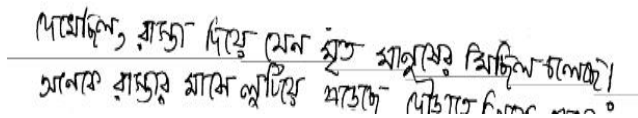 দেখেছিল, রাস্তা দিয়ে যেন মৃত মানুষের মিছিল চলেছে।
অনেকে রাস্তার মাঝে লুটিয়ে পড়েছে দৌড়াতে